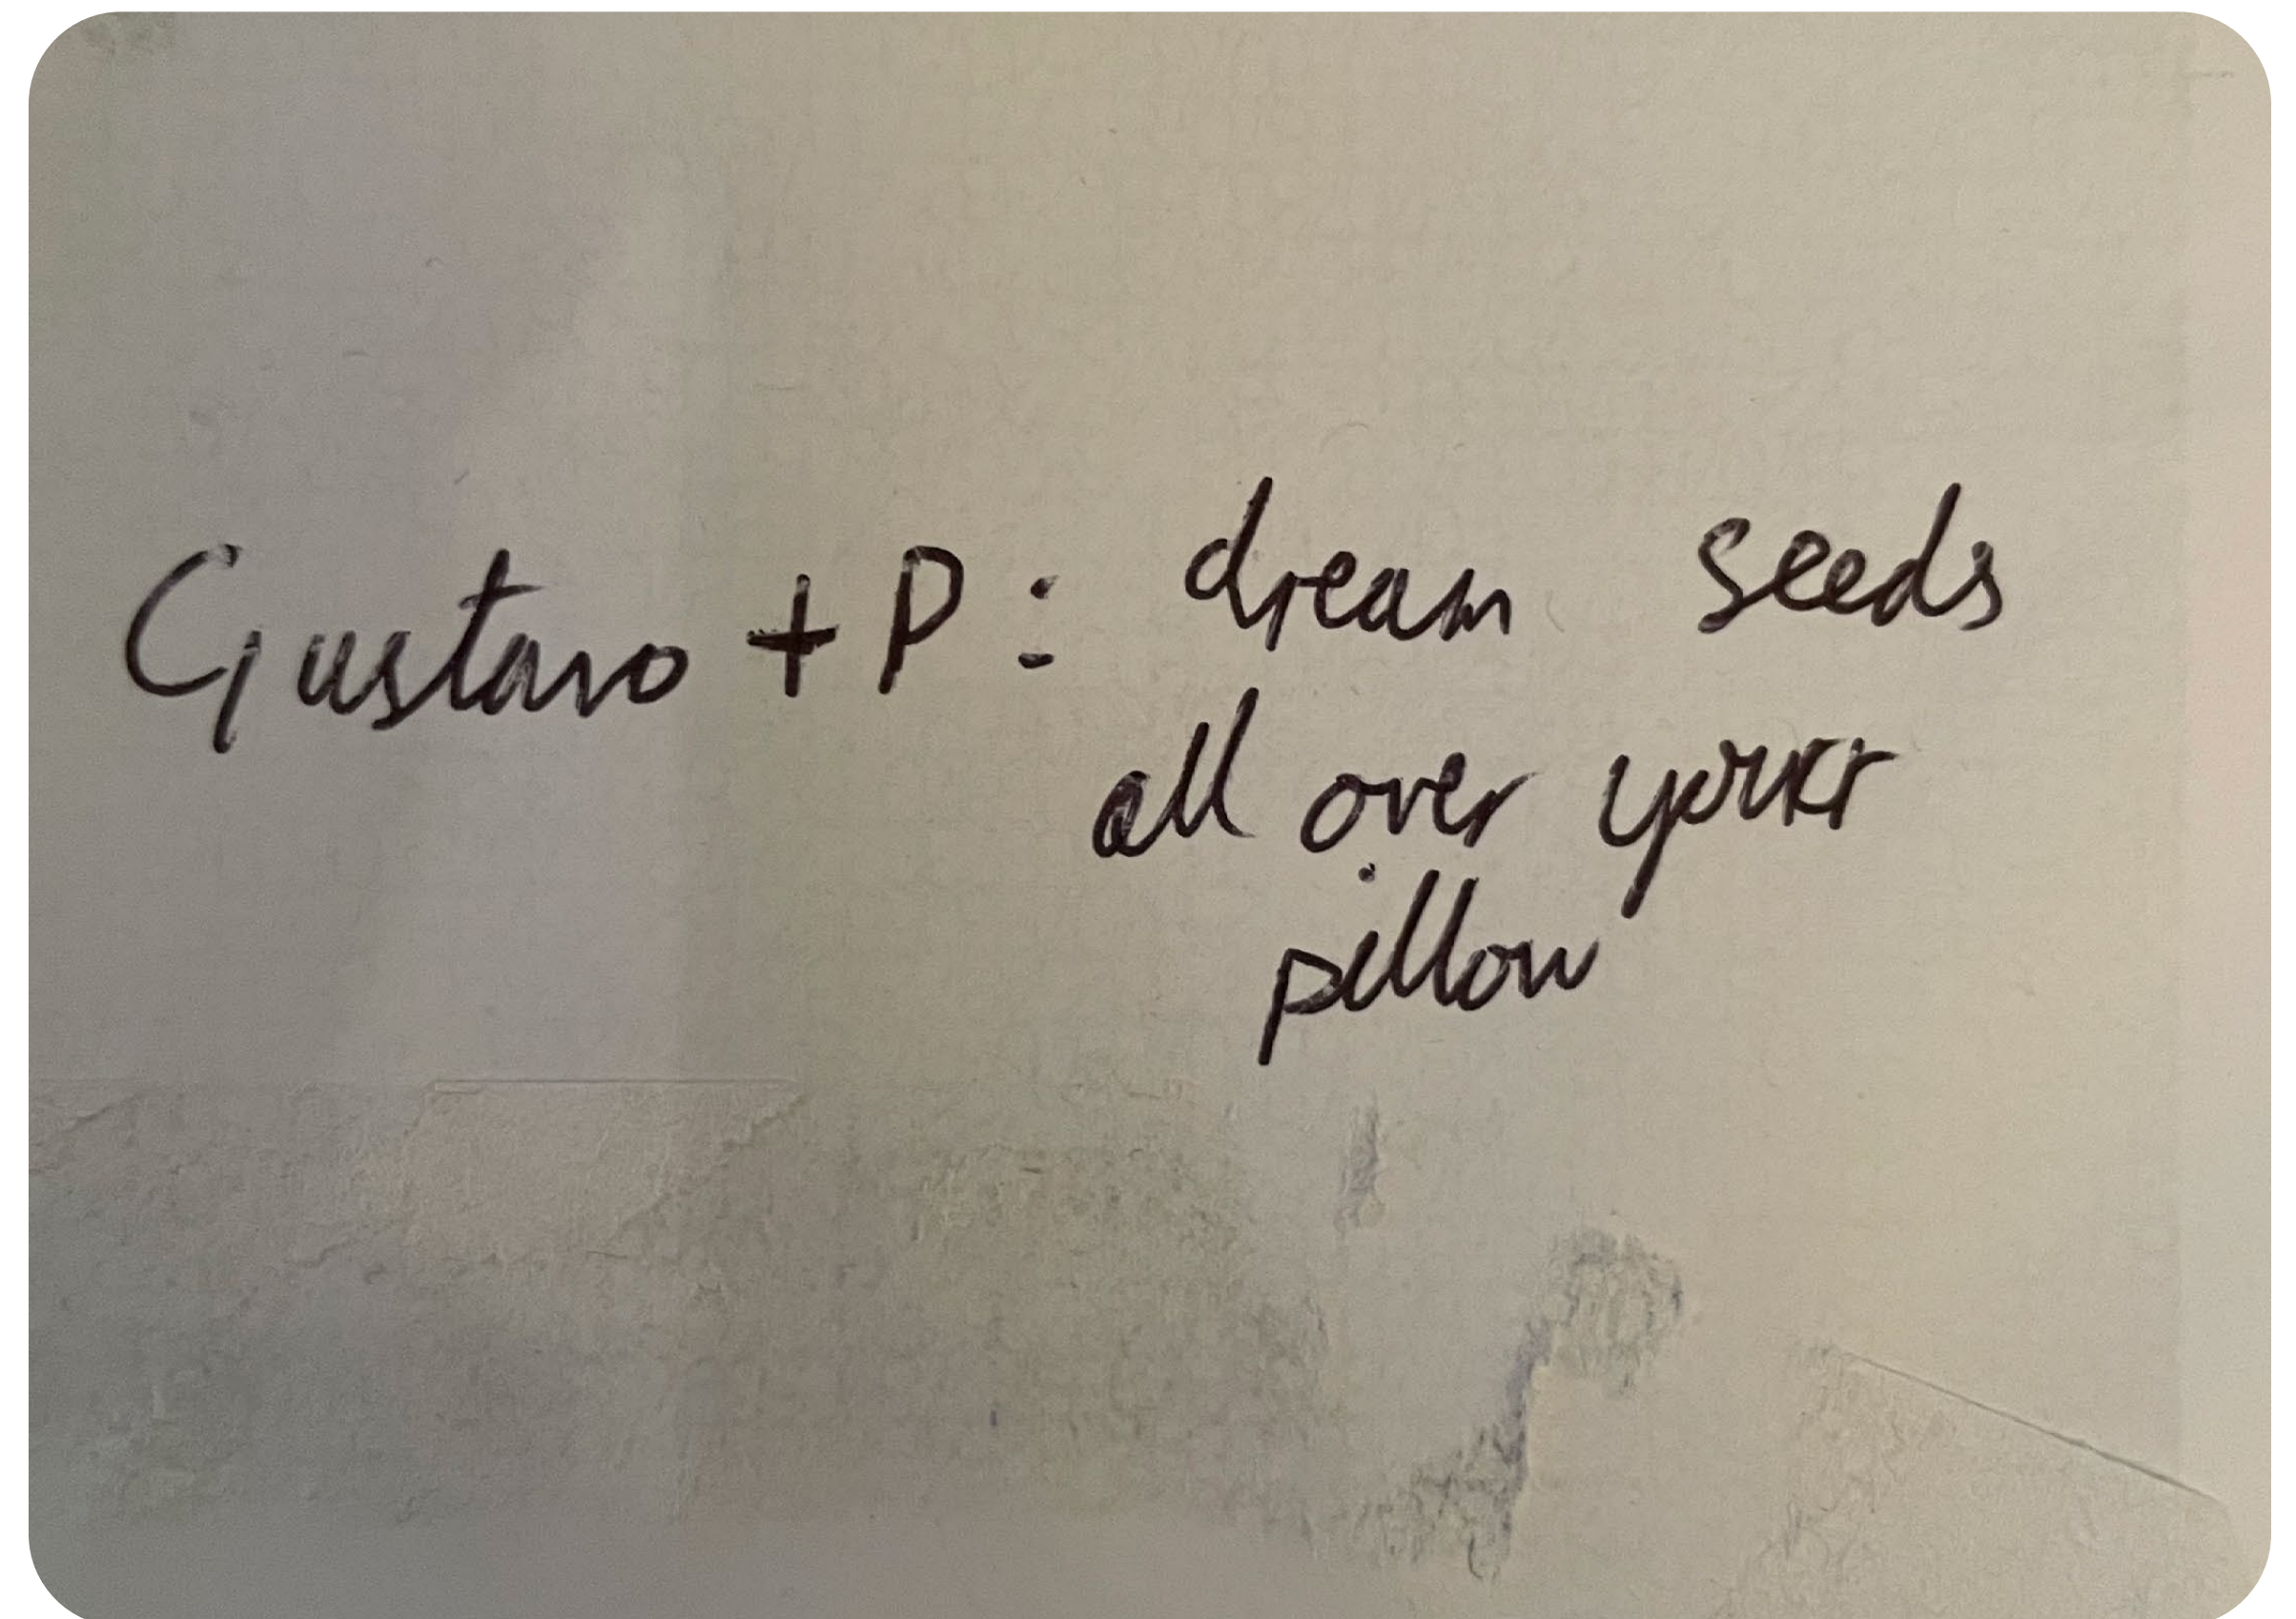 Gustavo + P: dream seeds
all over your
pillow